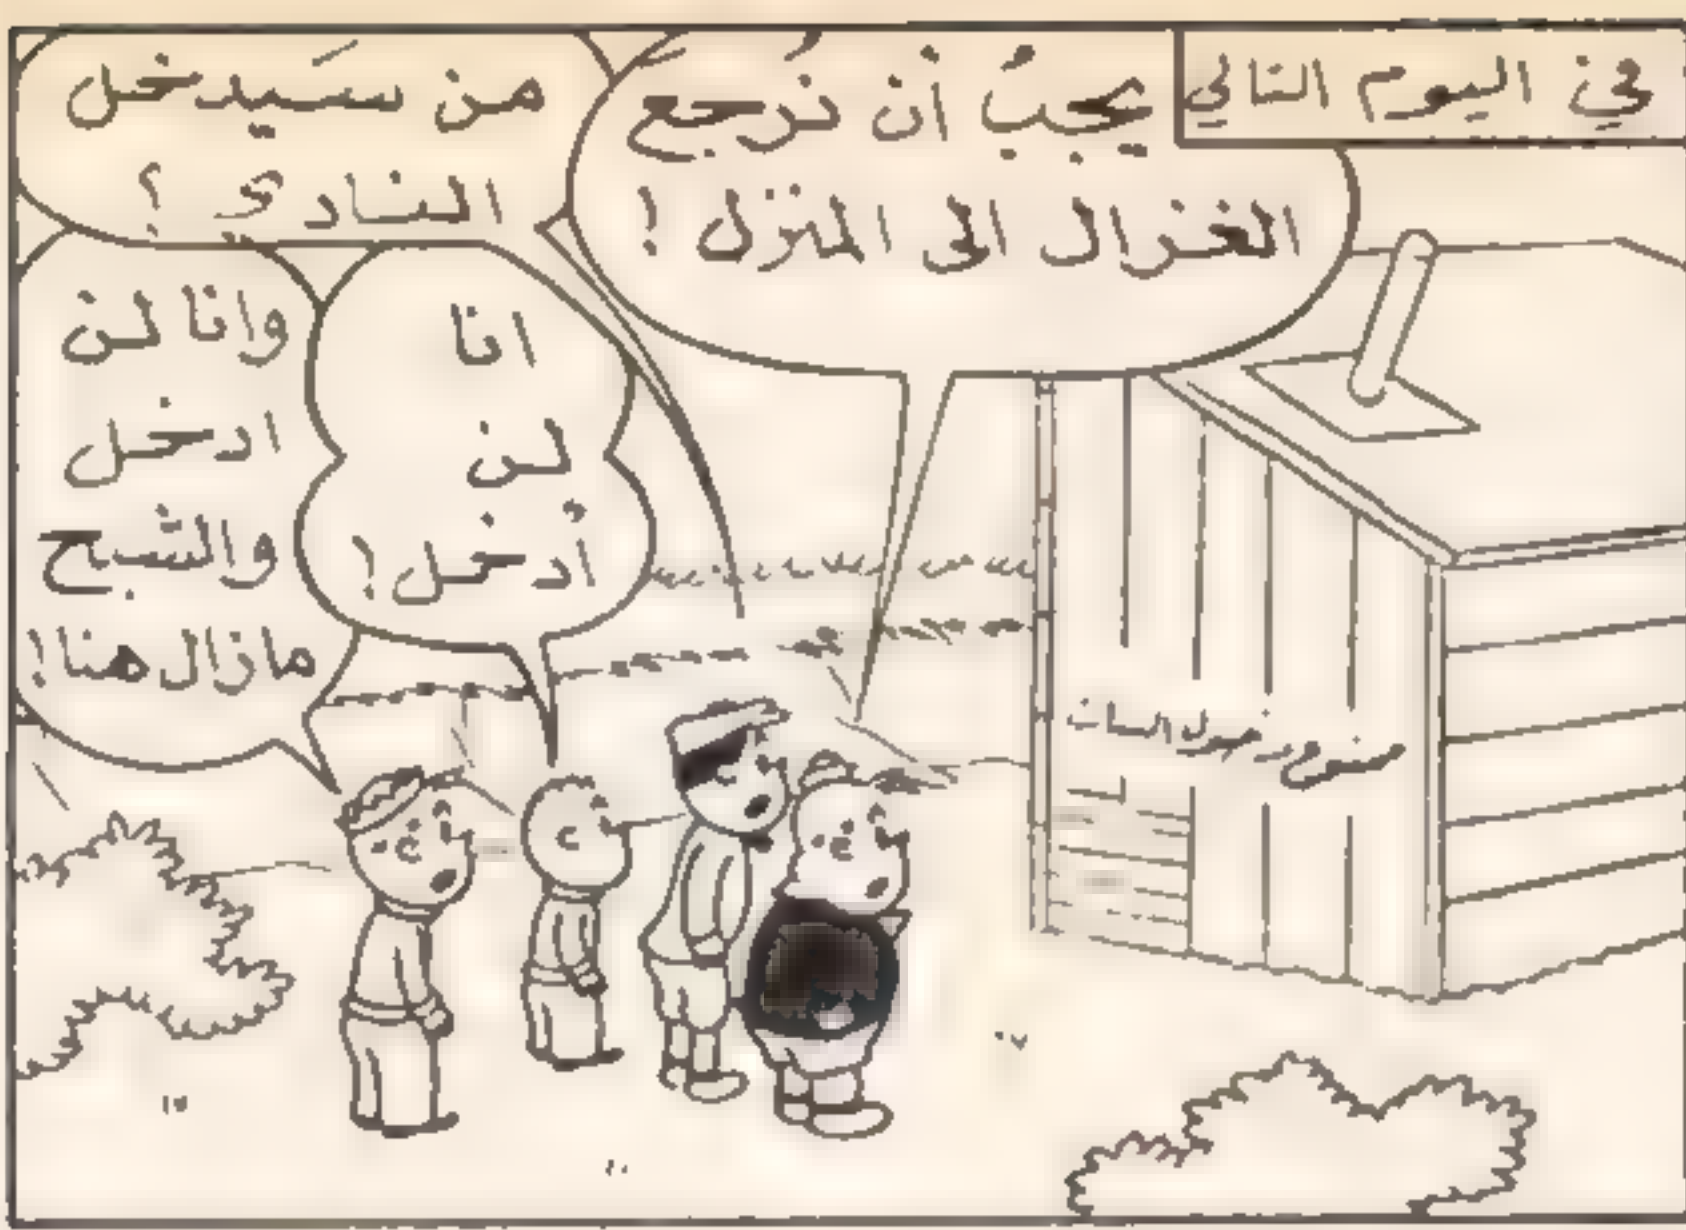 في اليوم التالي
يجبُ أن نُرجع
الغزال الى المنزل !
من سَيدخل
النادي ؟
انا
لن
أدخل !
وانا لن
ادخل
والشبح
مازال هنا !
ممنوع دخول البنات